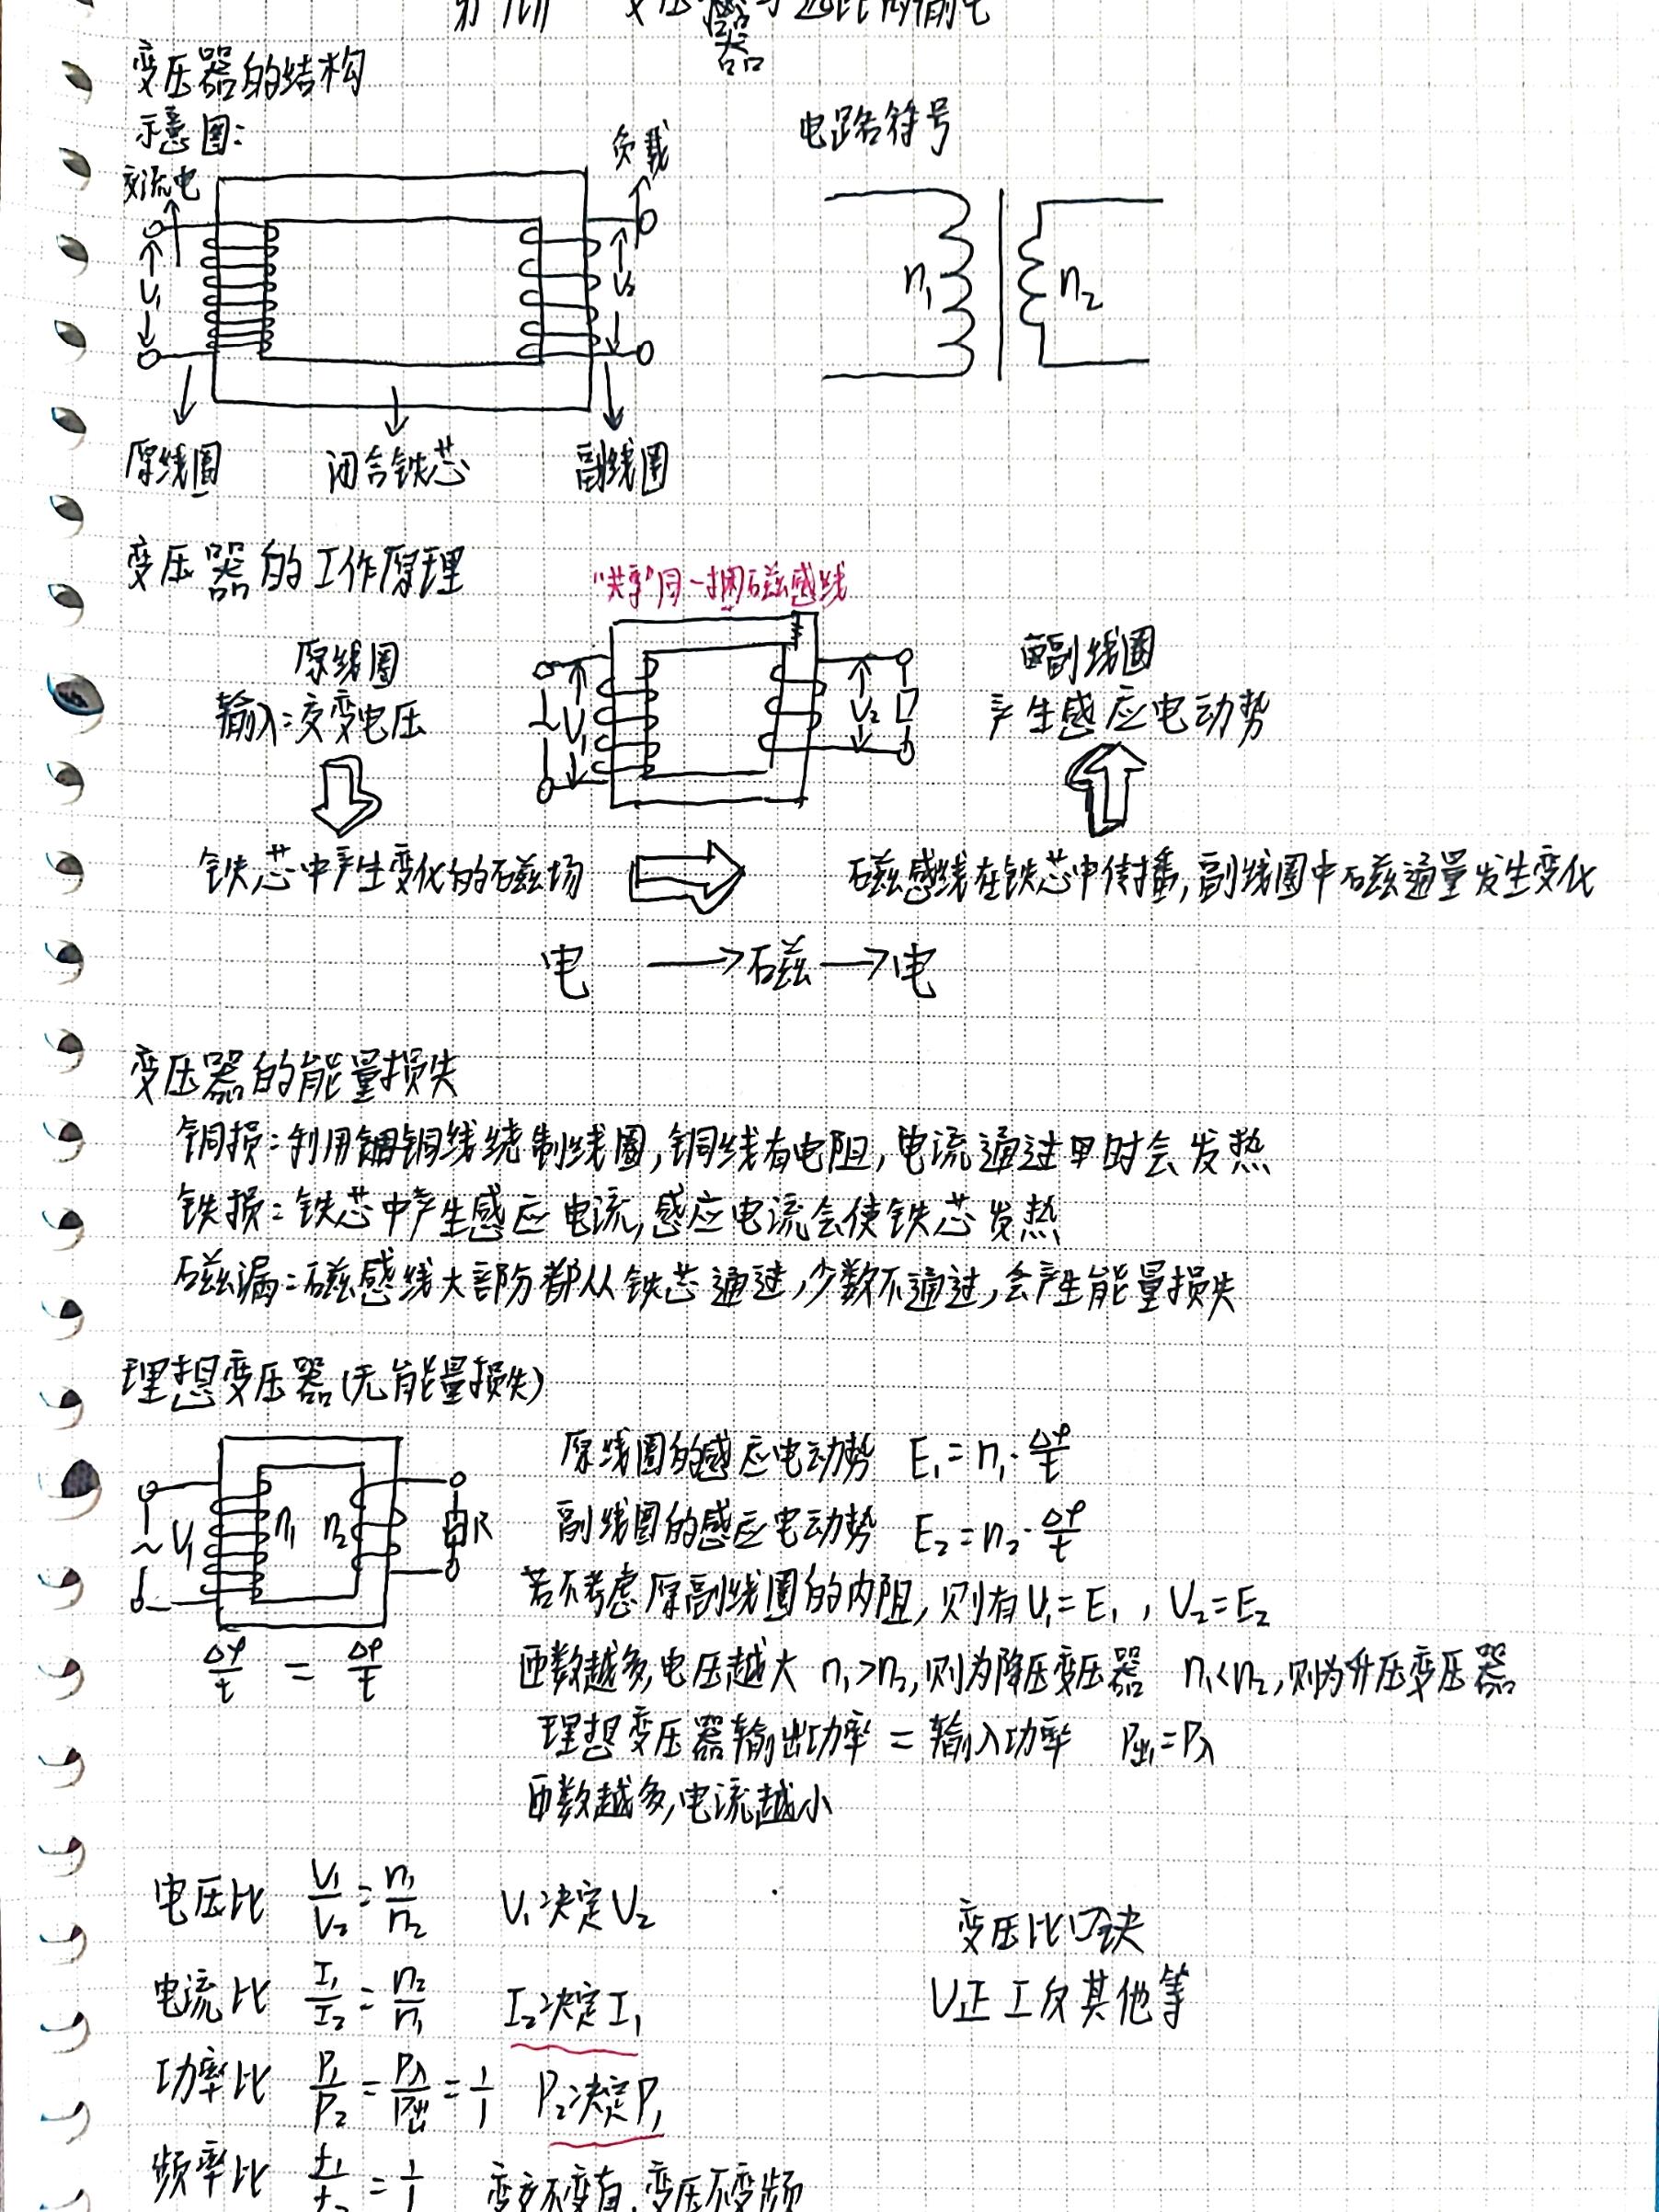 变压器的结构
示意图:
电路符号
交流电
负载
U₁
U₂
n₁
n₂
原线圈
闭合铁芯
副线圈
变压器的工作原理
"共享"同一捆磁感线
原线圈
副线圈
输入:交变电压
~U₁
U₂
产生感应电动势
铁芯中产生变化的磁场
磁感线在铁芯中传播,副线圈中磁通量发生变化
电 → 磁 → 电
变压器的能量损失
铜损:利用铜线绕制线圈,铜线有电阻,电流通过时会发热
铁损:铁芯中产生感应电流,感应电流会使铁芯发热
磁漏:磁感线大部分都从铁芯通过,少数不通过,会产生能量损失
理想变压器(无能量损失)
原线圈的感应电动势 E₁=n₁·Δφ/t
~U₁ n₁ n₂ R
副线圈的感应电动势 E₂=n₂·Δφ/t
若不考虑原副线圈的内阻,则有U₁=E₁,U₂=E₂
Δφ/t = Δφ/t
匝数越多,电压越大 n₁>n₂,则为降压变压器 n₁<n₂,则为升压变压器
理想变压器输出功率=输入功率 P出=P入
匝数越多,电流越小
电压比 U₁/U₂=n₁/n₂ U₁决定U₂
变压比口诀
电流比 I₁/I₂=n₂/n₁ I₂决定I₁
U正I反其他等
功率比 P₁/P₂=P入/P出=1/1 P₂决定P₁
频率比 f₁/f₂=1/1 变交不变直,变压不变频